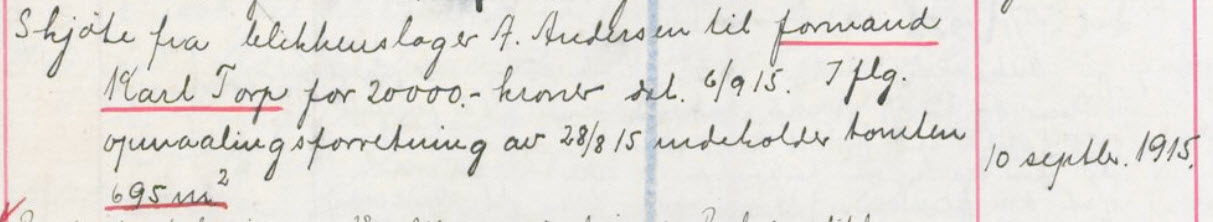 Skjøte fra blikkenslager A. Andersen til formand
Karl Torp for 20000.- kroner dat. 6/9 15. I flg.
opmaalingsforretning av 28/8 15 indeholder tomten
695 m²
10 septbr. 1915.